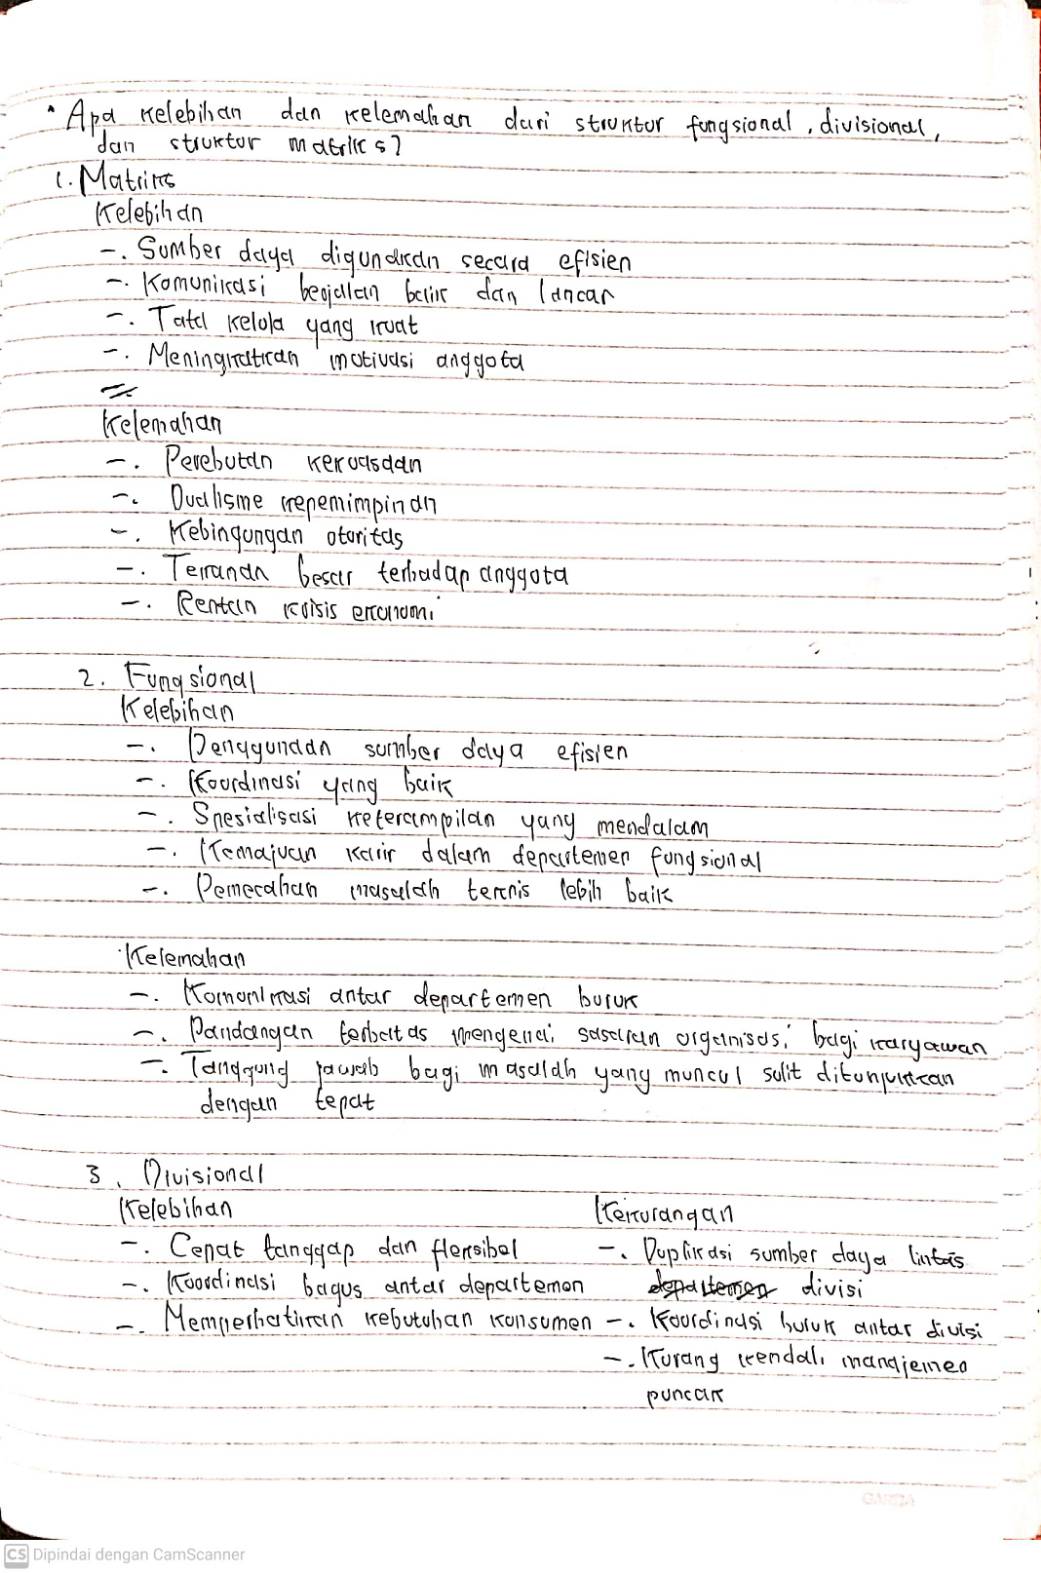 • Apa kelebihan dan kelemahan dari struktur fungsional, divisional,
dan struktur matriks?
1. Matriks
Kelebihan
-. Sumber daya digunakan secara efisien
-. Komunikasi berjalan baik dan lancar
-. Tata kelola yang kuat
-. Meningkatkan motivasi anggota
Kelemahan
-. Perebutan kekuasaan
-. Dualisme kepemimpinan
-. Kebingungan otoritas
-. Tekanan besar terhadap anggota
-. Rentan krisis ekonomi
2. Fungsional
Kelebihan
-. Penggunaan sumber daya efisien
-. Koordinasi yang baik
-. Spesialisasi keterampilan yang mendalam
-. Kemajuan karir dalam departemen fungsional
-. Pemecahan masalah teknis lebih baik
Kelemahan
-. Komunikasi antar departemen buruk
-. Pandangan terbatas mengenai sasaran organisasi bagi karyawan
-. Tanggung jawab bagi masalah yang muncul sulit ditunjukkan
dengan tepat
3. Divisional
Kelebihan
-. Cepat tanggap dan fleksibel
-. Koordinasi bagus antar departemen
-. Memperhatikan kebutuhan konsumen
Kekurangan
-. Duplikasi sumber daya lintas
departemen divisi
-. Koordinasi buruk antar divisi
-. Kurang kendali manajemen
puncak
GARDA
CS Dipindai dengan CamScanner